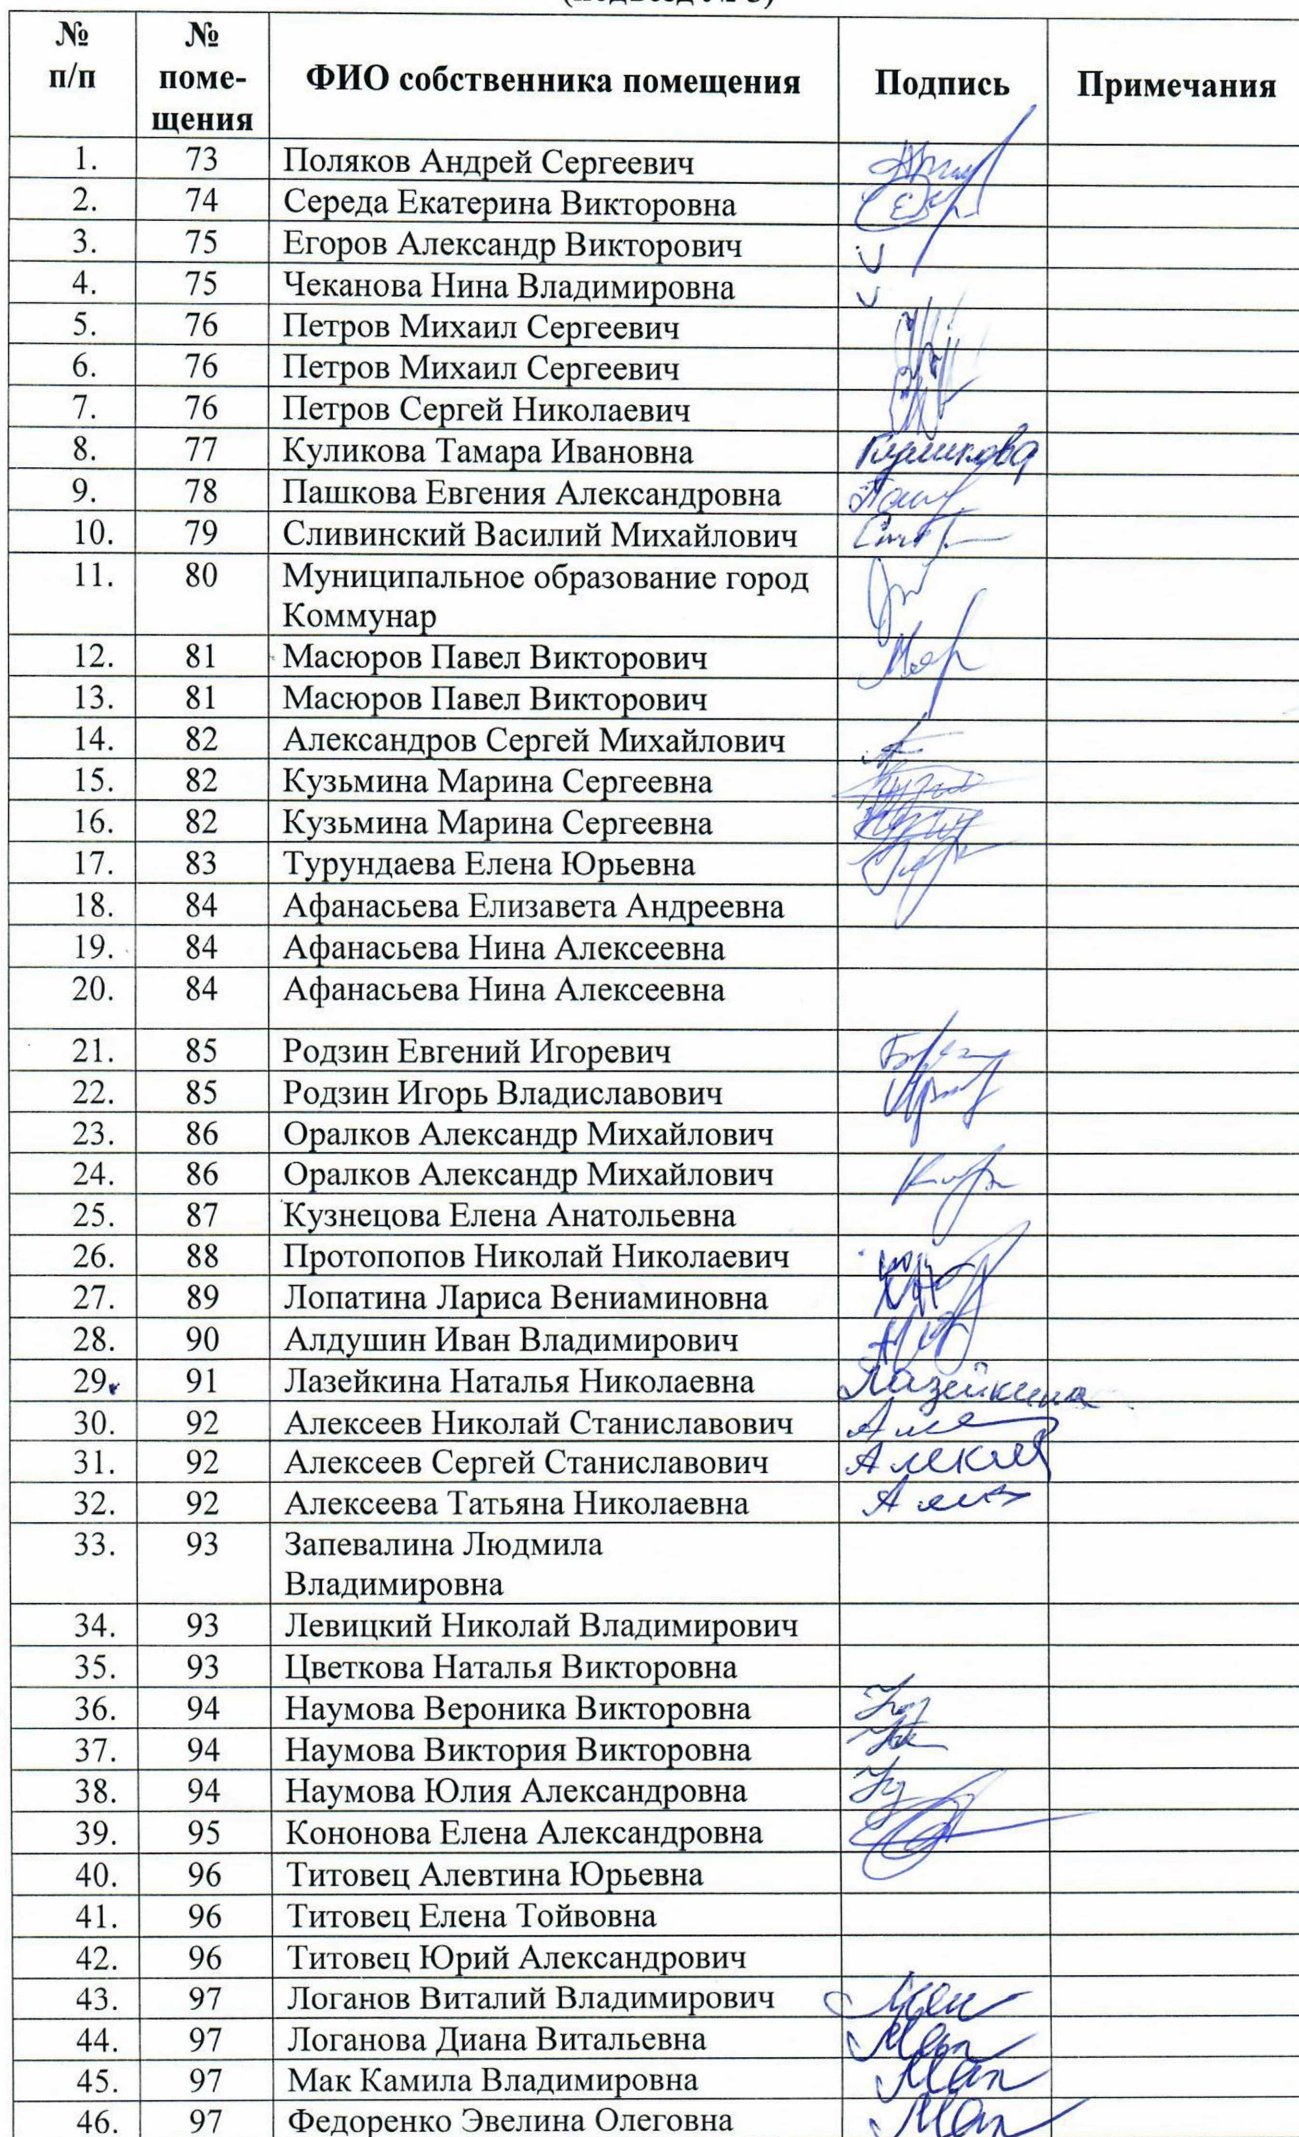 № п/п № поме-щения ФИО собственника помещения Подпись Примечания
1. 73 Поляков Андрей Сергеевич
2. 74 Середа Екатерина Викторовна
3. 75 Егоров Александр Викторович
4. 75 Чеканова Нина Владимировна
5. 76 Петров Михаил Сергеевич
6. 76 Петров Михаил Сергеевич
7. 76 Петров Сергей Николаевич
8. 77 Куликова Тамара Ивановна Куликова
9. 78 Пашкова Евгения Александровна
10. 79 Сливинский Василий Михайлович
11. 80 Муниципальное образование город
Коммунар
12. 81 Масюров Павел Викторович
13. 81 Масюров Павел Викторович
14. 82 Александров Сергей Михайлович
15. 82 Кузьмина Марина Сергеевна
16. 82 Кузьмина Марина Сергеевна
17. 83 Турундаева Елена Юрьевна
18. 84 Афанасьева Елизавета Андреевна
19. 84 Афанасьева Нина Алексеевна
20. 84 Афанасьева Нина Алексеевна
21. 85 Родзин Евгений Игоревич
22. 85 Родзин Игорь Владиславович
23. 86 Оралков Александр Михайлович
24. 86 Оралков Александр Михайлович
25. 87 Кузнецова Елена Анатольевна
26. 88 Протопопов Николай Николаевич
27. 89 Лопатина Лариса Вениаминовна
28. 90 Алдушин Иван Владимирович
29. 91 Лазейкина Наталья Николаевна Лазейкина
30. 92 Алексеев Николай Станиславович
31. 92 Алексеев Сергей Станиславович
32. 92 Алексеева Татьяна Николаевна
33. 93 Запевалина Людмила
Владимировна
34. 93 Левицкий Николай Владимирович
35. 93 Цветкова Наталья Викторовна
36. 94 Наумова Вероника Викторовна
37. 94 Наумова Виктория Викторовна
38. 94 Наумова Юлия Александровна
39. 95 Кононова Елена Александровна
40. 96 Титовец Алевтина Юрьевна
41. 96 Титовец Елена Тойвовна
42. 96 Титовец Юрий Александрович
43. 97 Логанов Виталий Владимирович
44. 97 Логанова Диана Витальевна
45. 97 Мак Камила Владимировна
46. 97 Федоренко Эвелина Олеговна